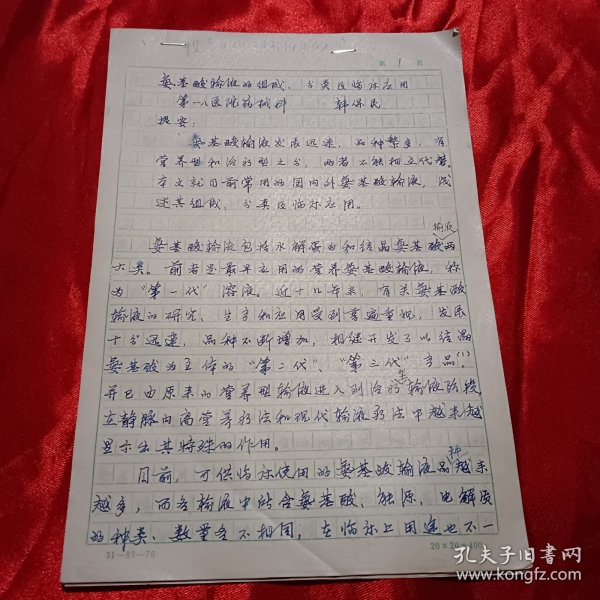 第 1 页
氨基酸输液的组成、分类及临床应用
第一八医院药械科 韩保民
提要:
氨基酸输液发展迅速，品种繁多，有
营养型和治疗型之分，两者不能相互代替。
本文就目前常用的国内外氨基酸输液，浅
述其组成、分类及临床应用。
氨基酸输液包括水解蛋白和结晶氨基酸输液两
大类。前者是最早应用的营养氨基酸输液，称
为“第一代”溶液。近十几年来，有关氨基酸
输液的研究、生产和应用受到普遍重视，发展
十分迅速，品种不断增加，相继开发了以结晶
氨基酸为主体的“第二代”、“第三代”产品(1)。
并已由原来的营养型输液进入到治疗型输液阶段，
在静脉内高营养疗法和现代输液疗法中越来越
显示出其特殊的作用。
目前，可供临床使用的氨基酸输液品种越来
越多，而各输液中所含氨基酸、能源、电解质
的种类、数量各不相同，在临床上用途也不一
31—83—76
20×20=400
孔夫子旧书网
www.kongfz.com